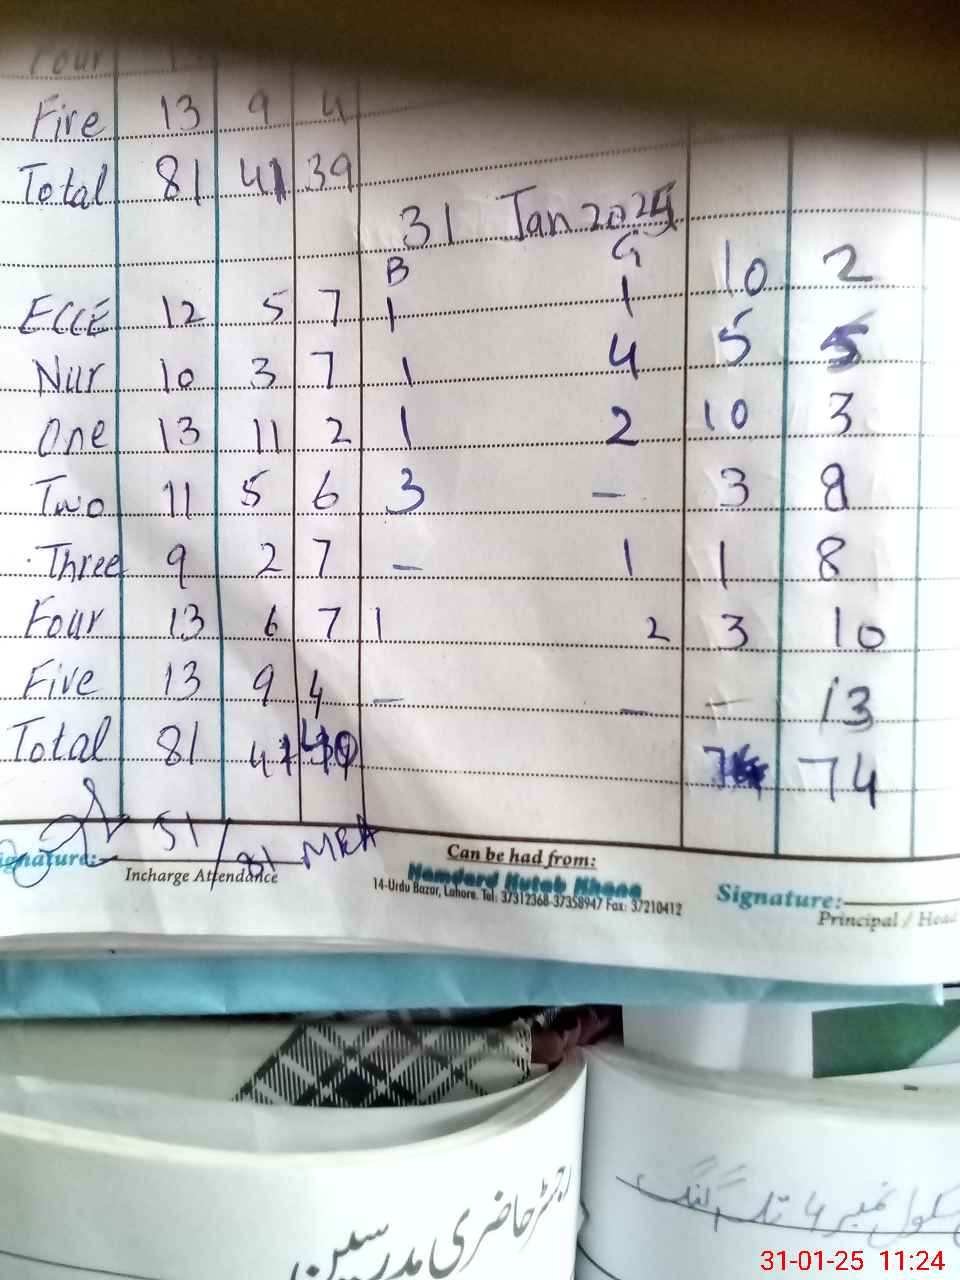 Four
Five 13 9 4
Total 81 41 39
31 Jan 2025
B G 10 2
ECCE 12 5 7 1 1
Nur 10 3 7 1 4 5 5
One 13 11 2 1 2 10 3
Two 11 5 6 3 – 3 8
Three 9 2 7 – 1 1 8
Four 13 6 7 1 2 3 10
Five 13 9 4 – – – 13
Total 81 41 74
51/81 MEA
Signature: Can be had from: Signature:
Incharge Attendance Hamdard Kutab Khana Principal / Head
14-Urdu Bazar, Lahore. Tel: 37312368-37358947 Fax: 37210412
رجسٹر حاضری مدرسین
سکول نمبر 4 تلہ گنگ
31-01-25 11:24